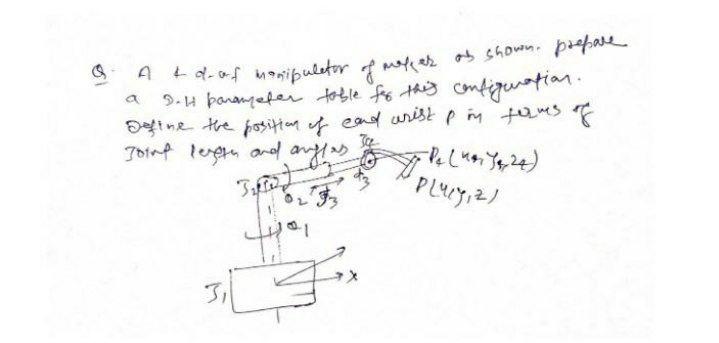 Q. A 4 d.o.f manipulator of as shown. prepare
a D.H parameter table for this configuration.
Define the position of end wrist P in terms of
Joint length and angles
J4
P4 (x4, y4, z4)
J2
θ2
J3
d3
P(x, y, z)
θ1
J1
X